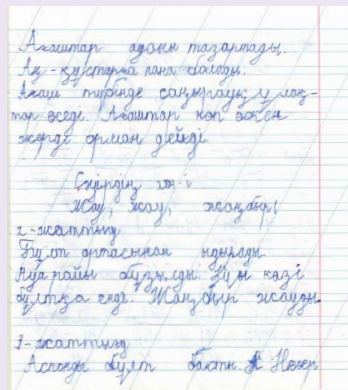 Ағаштар ауаны тазартады.
Аң-құстарға пана болады.
Ағаш түбінде саңырауқұлақ-
тар өседі. Ағаштар көп өскен
жерді орман дейді.
Сәуірдің
Жау, жау, жаңбыр!
2-жаттығу
Бұлт ортасынан ыдырады.
Ауа райы бұзылды. Күн көзі
бұлтқа енді. Жаңбыр жауды.
3-жаттығу
Аспанды бұлт басты. Нөсер